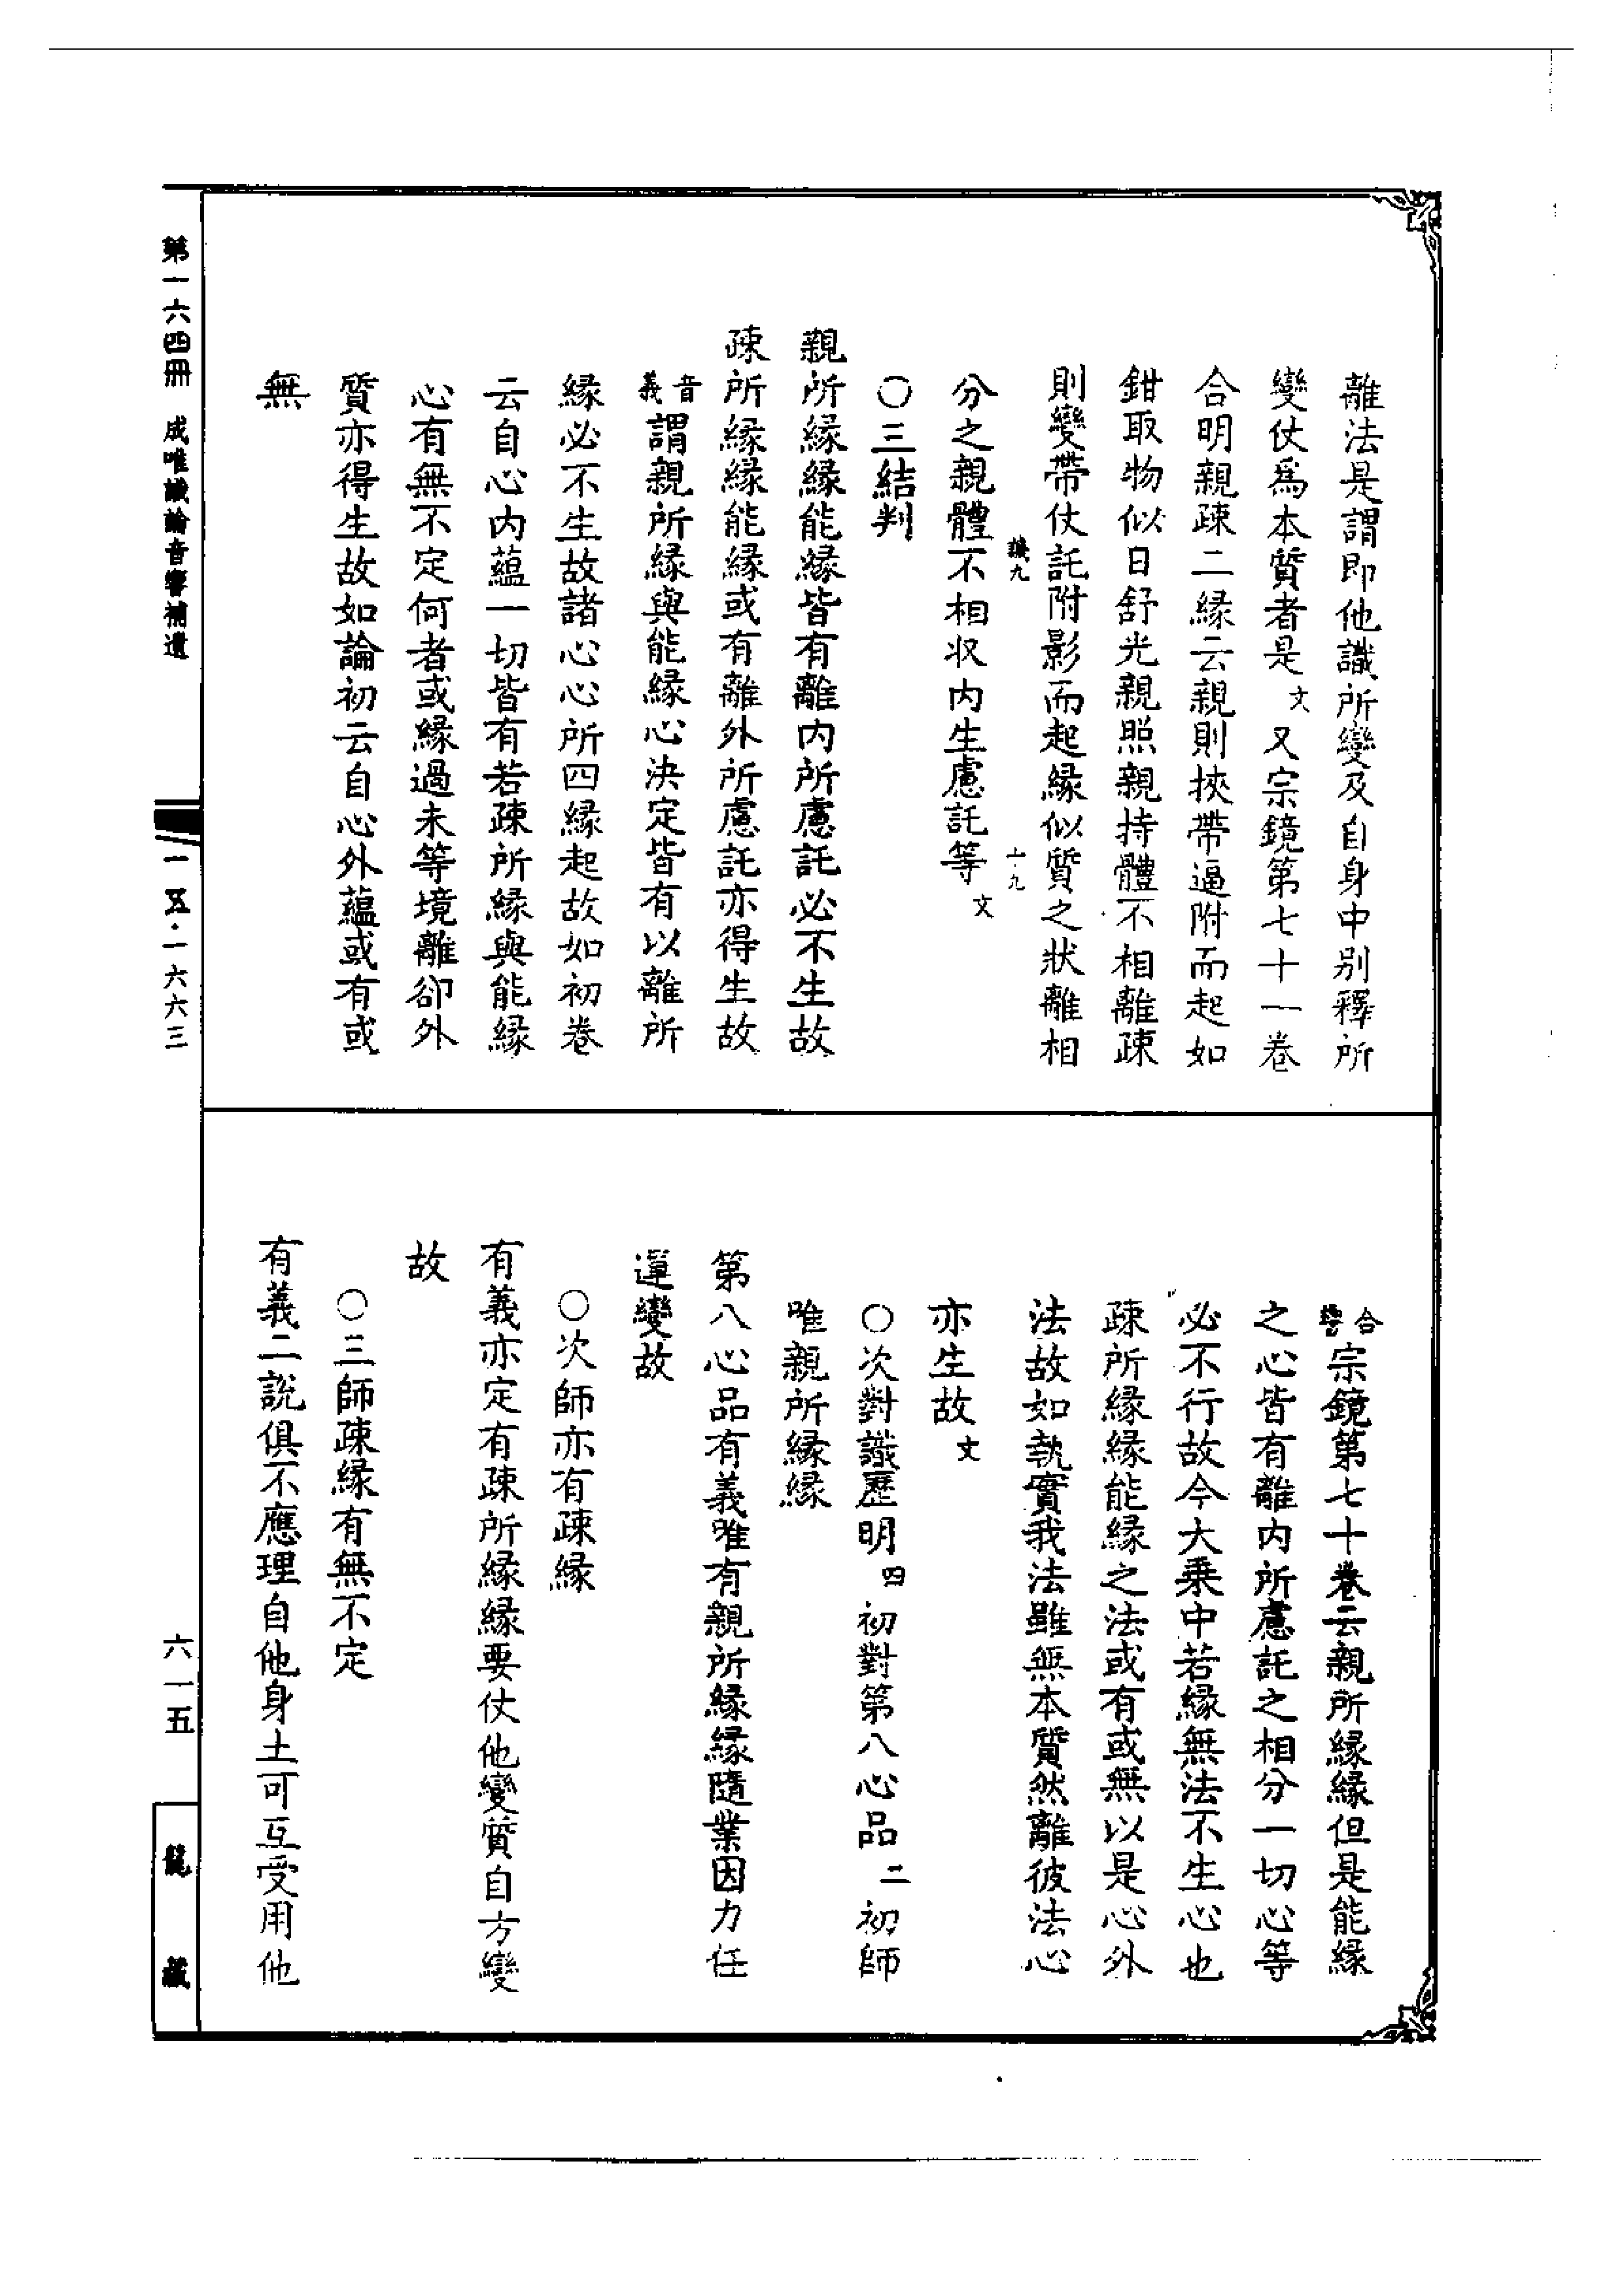 離法是謂即他識所變及自身中別釋所
變仗爲本質者是文又宗鏡第七十一卷
合明親疎二緣云親則挾帶逼附而起如
鉗取物似日舒光親照親持體不相離疎
則變帶仗託附影而起緣似質之狀離相
識九
十九
分之親體不相収内生慮託等文
○三結判
親所緣緣能緣皆有離内所慮託必不生故
疎所緣緣能緣或有離外所慮託亦得生故
音義謂親所緣與能緣心決定皆有以離所
緣必不生故諸心心所四緣起故如初卷
云自心内蘊一切皆有若疎所緣與能緣
心有無不定何者或緣過未等境離卻外
質亦得生故如論初云自心外蘊或有或
無
合響宗鏡第七十卷云親所緣緣但是能緣
之心皆有離内所慮託之相分一切心等
必不行故今大乗中若緣無法不生心也
疎所緣緣能緣之法或有或無以是心外
法故如執實我法雖無本質然離彼法心
亦生故文
○次對識歷明四初對第八心品二初師
唯親所緣緣
第八心品有義唯有親所緣緣隨業因力任
運變故
○次師亦有疎緣
有義亦定有疎所緣緣要仗他變質自方變
故
○三師疎緣有無不定
有義二說俱不應理自他身土可互受用他
第一六四冊　成唯識論音響補遺
一五·一六六三
六一五
龍藏